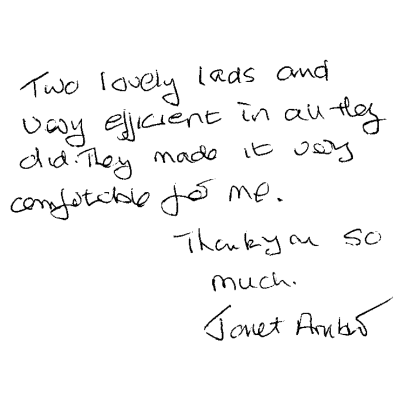 Two lovely lads and
very efficient in all they
did. They made it very
comfortable for me.
Thankyou so
much.
Janet